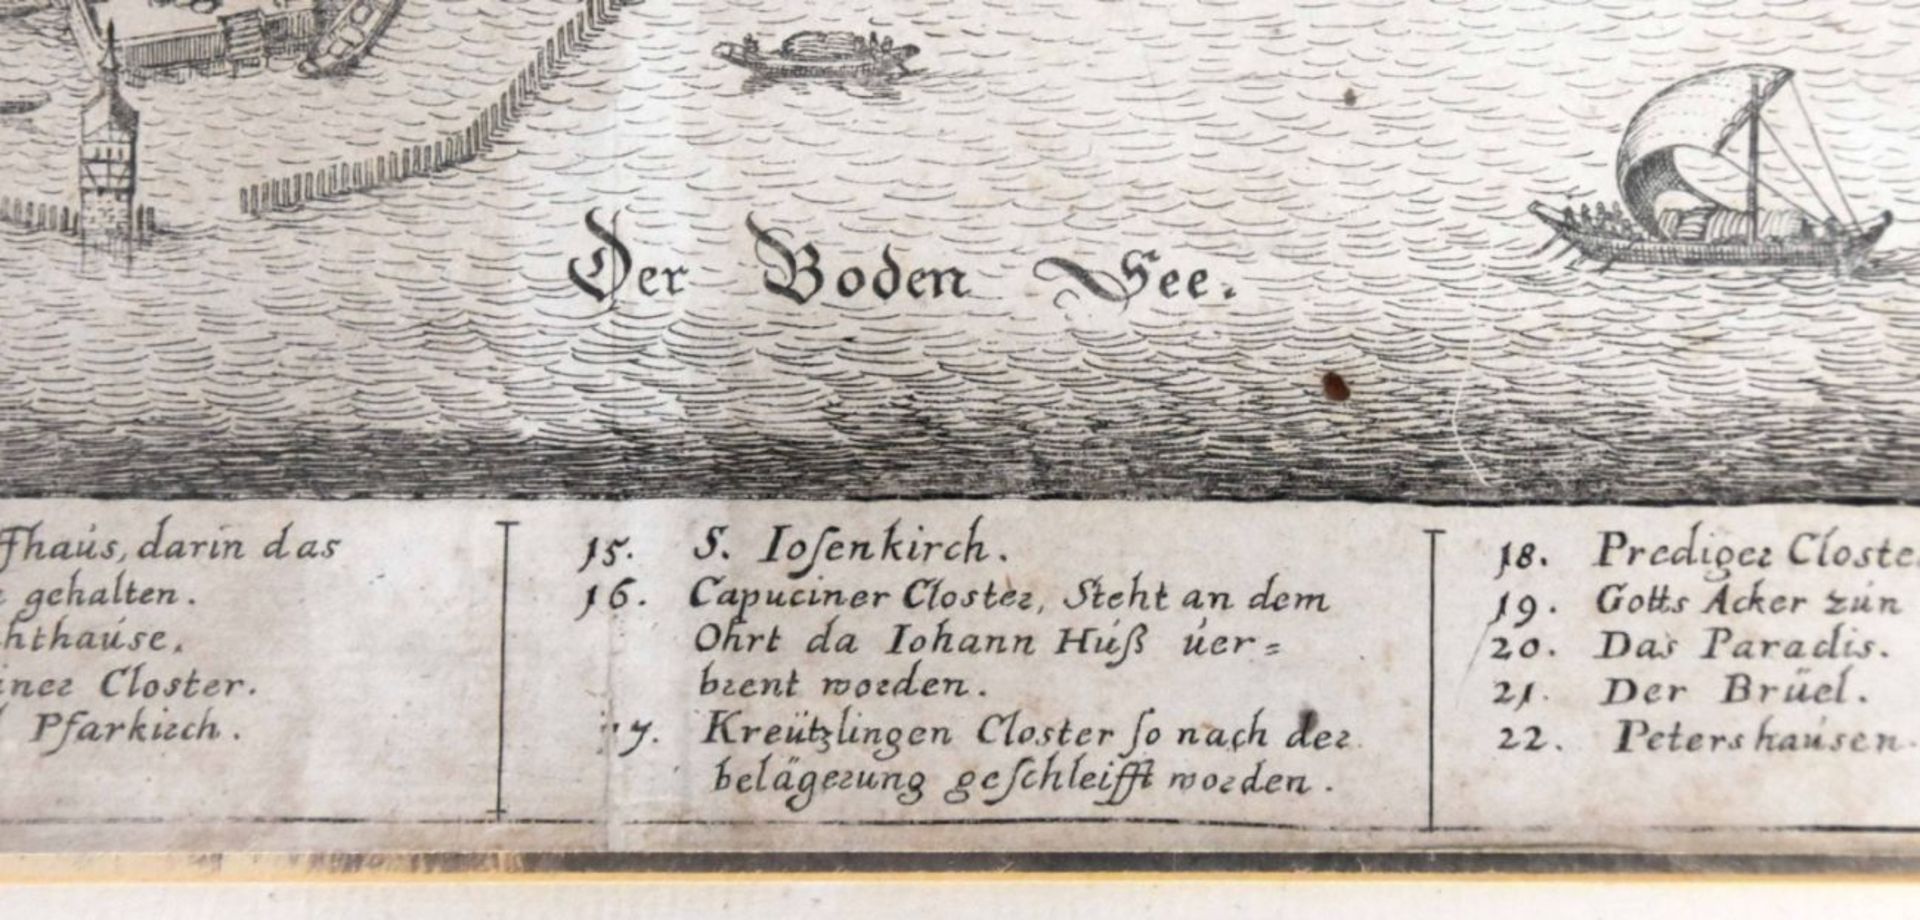 Der Boden See.
fhaus, darin das
gehalten.
hthause.
iner Closter.
Pfarkirch.
15. S. Iosenkirch.
16. Capuciner Closter, Steht an dem
Ohrt da Iohann Huß uer=
brent worden.
17. Kreützlingen Closter so nach der
belägerung geschleifft worden.
18. Prediger Closte
19. Gotts Acker zun
20. Das Paradis.
21. Der Brüel.
22. Petershausen.